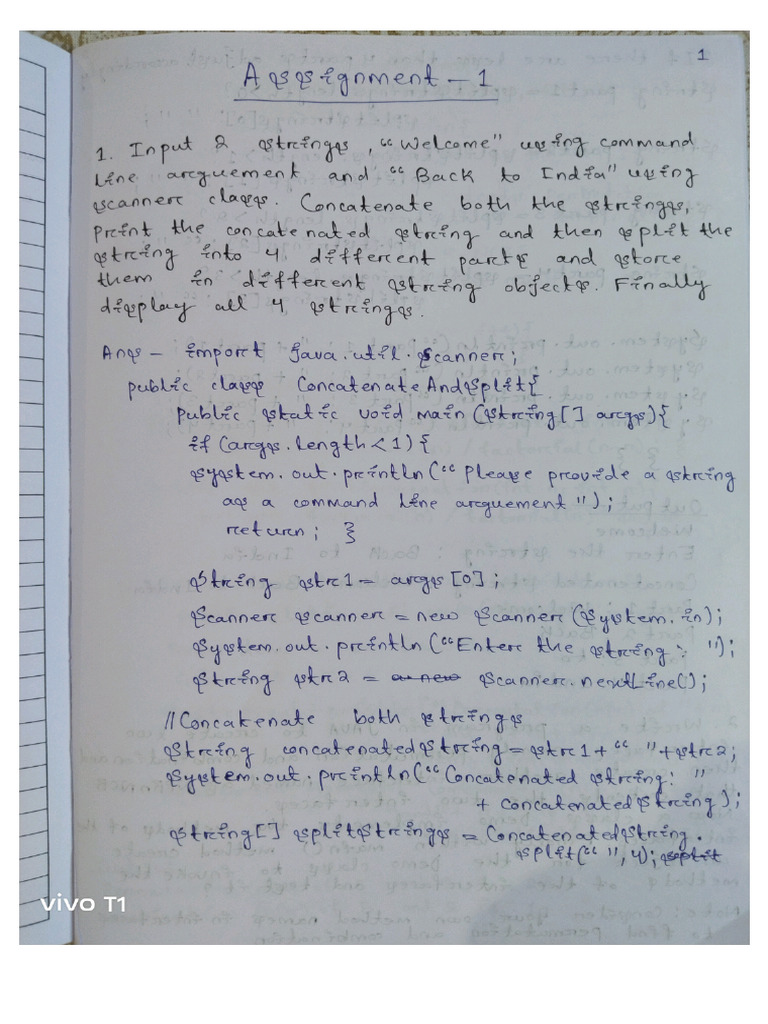 1
Assignment - 1
1. Input 2 strings, "Welcome" using command
line arguement and "Back to India" using
scanner class. Concatenate both the strings,
print the concatenated string and then split the
string into 4 different parts and store
them in different string objects. Finally
display all 4 strings.
Ans - import java.util.Scanner;
public class ConcatenateAndSplit{
public static void main (String[] args){
if (args.length<1){
System.out.println("Please provide a string
as a command line arguement");
return; }
String str1 = args[0];
Scanner scanner = new Scanner(System.in);
System.out.println("Enter the string: ");
String str2 = Scanner.nextLine();
//Concatenate both strings
String concatenatedString = str1+" "+str2;
System.out.println("Concatenated string: "
+ concatenatedString);
String[] splitStrings = ConcatenatedString.
split(" ",4); split
vivo T1